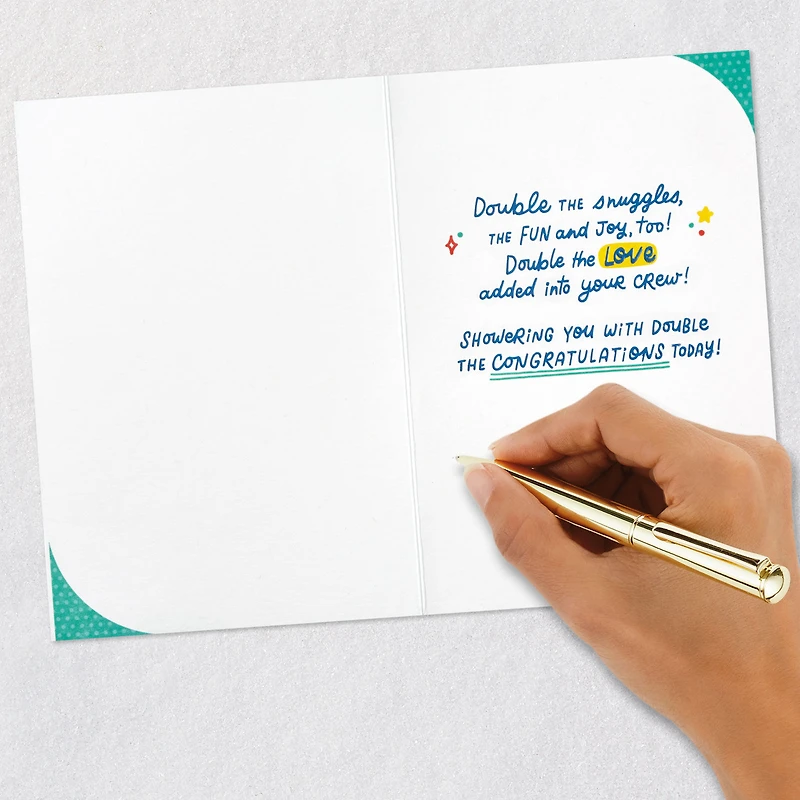 Double THE snuggles,
THE FUN and Joy, too!
Double the LOVE
added into your CREW!
SHOWERING YOU WITH DOUBLE
THE CONGRATULATIONS TODAY!